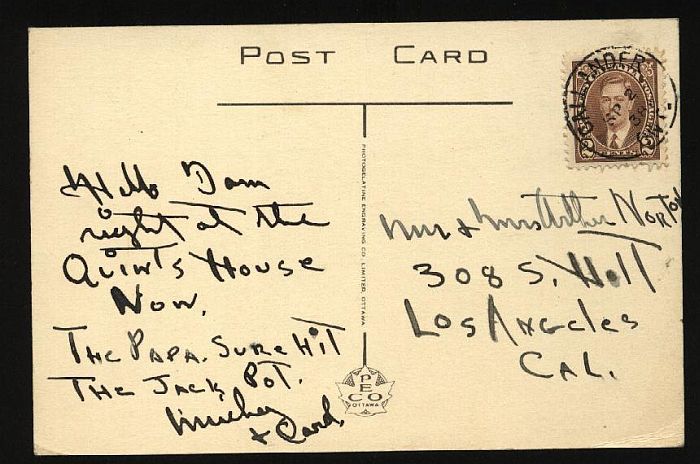 POST CARD
CALLANDER
ONT.
Hello I am
right at the
Quint's House
Now.
The Papa. Sure Hit
The Jack Pot.
Mr & Mrs Arthur Norton
308 S. Hill
Los Angeles
CAL.
PHOTOGELATINE ENGRAVING CO. LIMITED, OTTAWA
PECO
OTTAWA